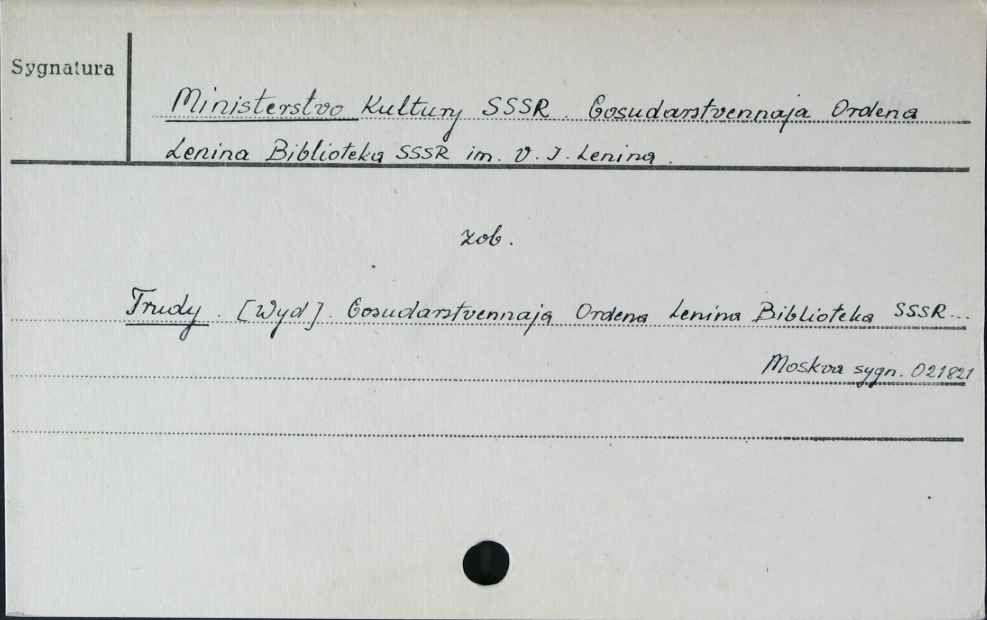 Sygnatura
Ministerstvo Kultury SSSR. Gosudarstvennaja Ordena
Lenina Biblioteka SSSR im. V. J. Lenina.
zob.
Trudy. [Wyd]. Gosudarstvennaja Ordena Lenina Biblioteka SSSR...
Moskva sygn. 021821